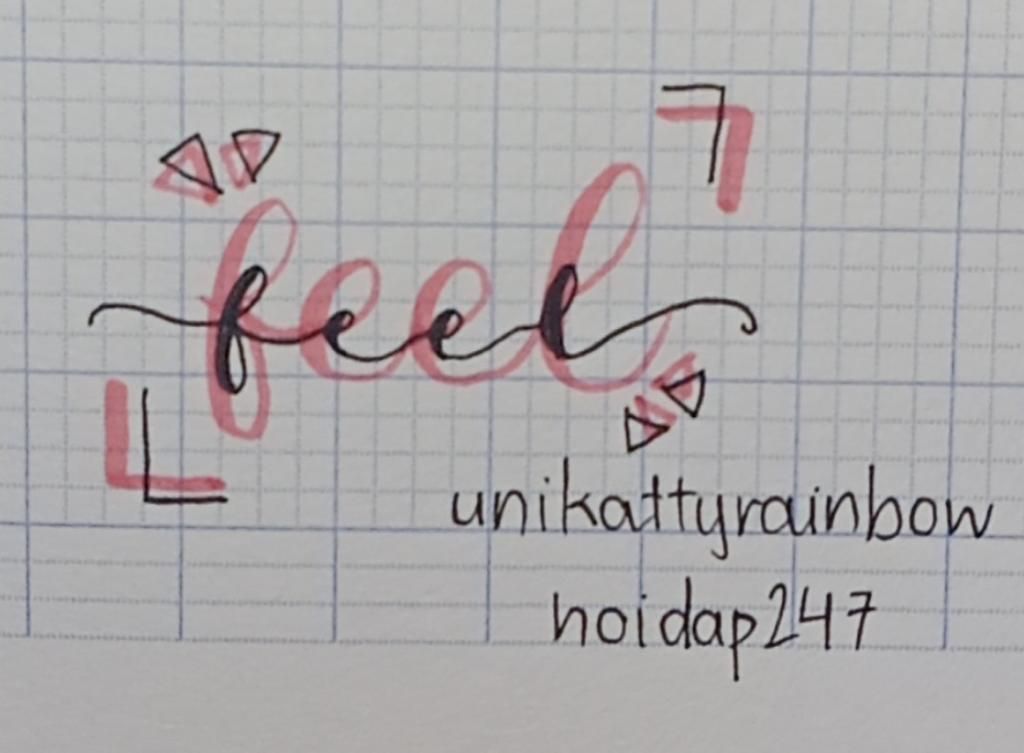 feel
unikattyrainbow
hoidap247